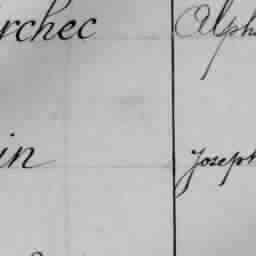 rchec Alph
in Joseph